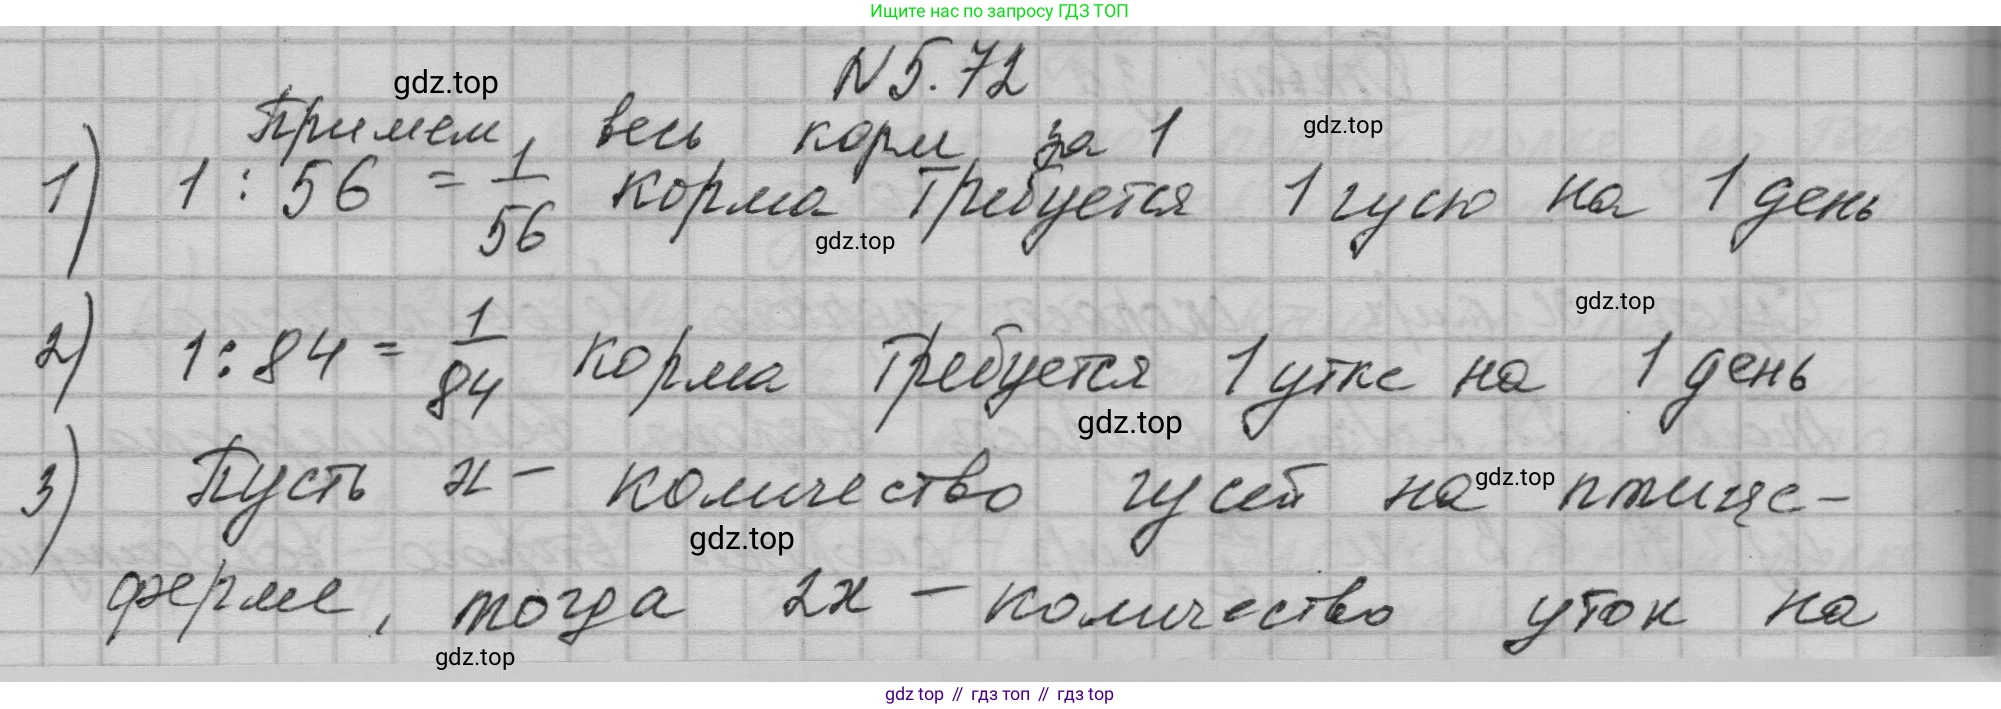 Ищите нас по запросу ГДЗ ТОП
N 5.72
gdz.top
Примем, весь корм за 1
gdz.top
1) 1 : 56 = 1/56 корма требуется 1 гусю на 1 день
gdz.top
gdz.top
2) 1 : 84 = 1/84 корма требуется 1 утке на 1 день
gdz.top
3) Пусть x – количество гусей на птице-
gdz.top
gdz.top
ферме, тогда 2x – количество уток на
gdz.top
gdz top // гдз топ // гдз top